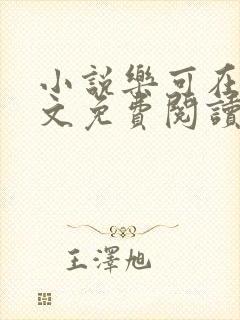 小説樂可在
文免費閱讀
王澤旭